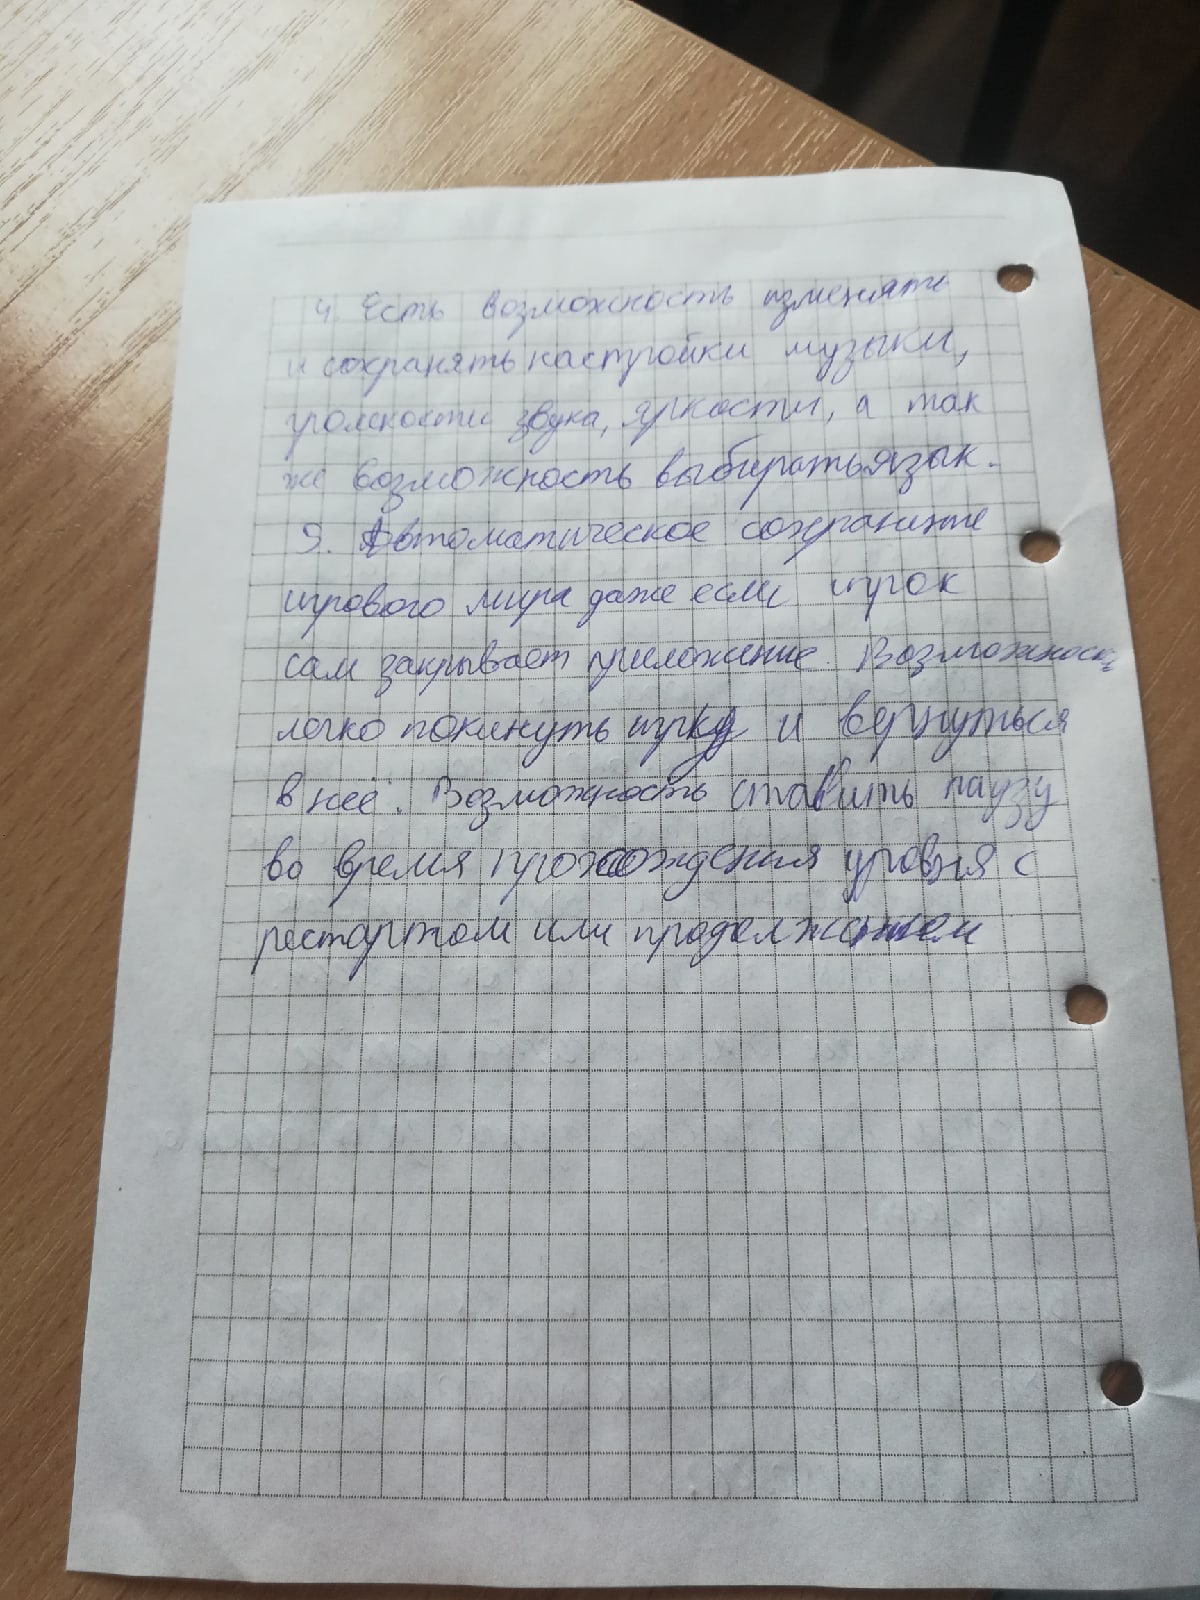 4. Есть возможность изменять
и сохранять настройки музыки,
громкости звука, яркости, а так
же возможность выбирать язык.
5. Автоматическое сохранение
игрового мира даже если игрок
сам закрывает приложение. Возможность
легко покинуть игру и вернуться
в неё. Возможность ставить паузу
во время прохождения уровня с
рестартом или продолжением